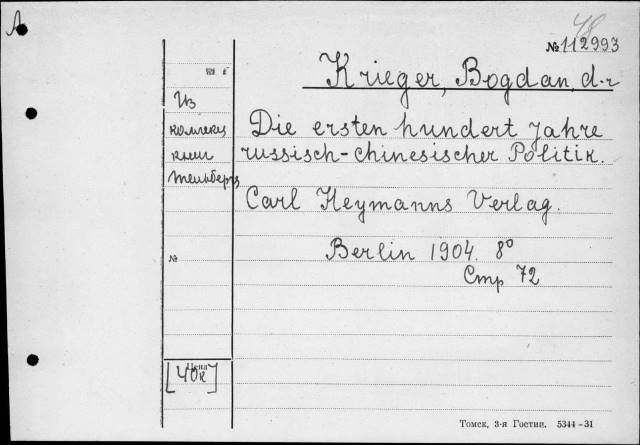 А
48
№ 112993
Krieger, Bogdan, d-r
Из
коллекц
книг
Die ersten hundert Jahre
russisch-chinesischer Politik.
Carl Heymanns Verlag.
Berlin 1904. 8°
Стр 72
№
Цена
[40к]
Томск, 3-я Гостип. 5344-31